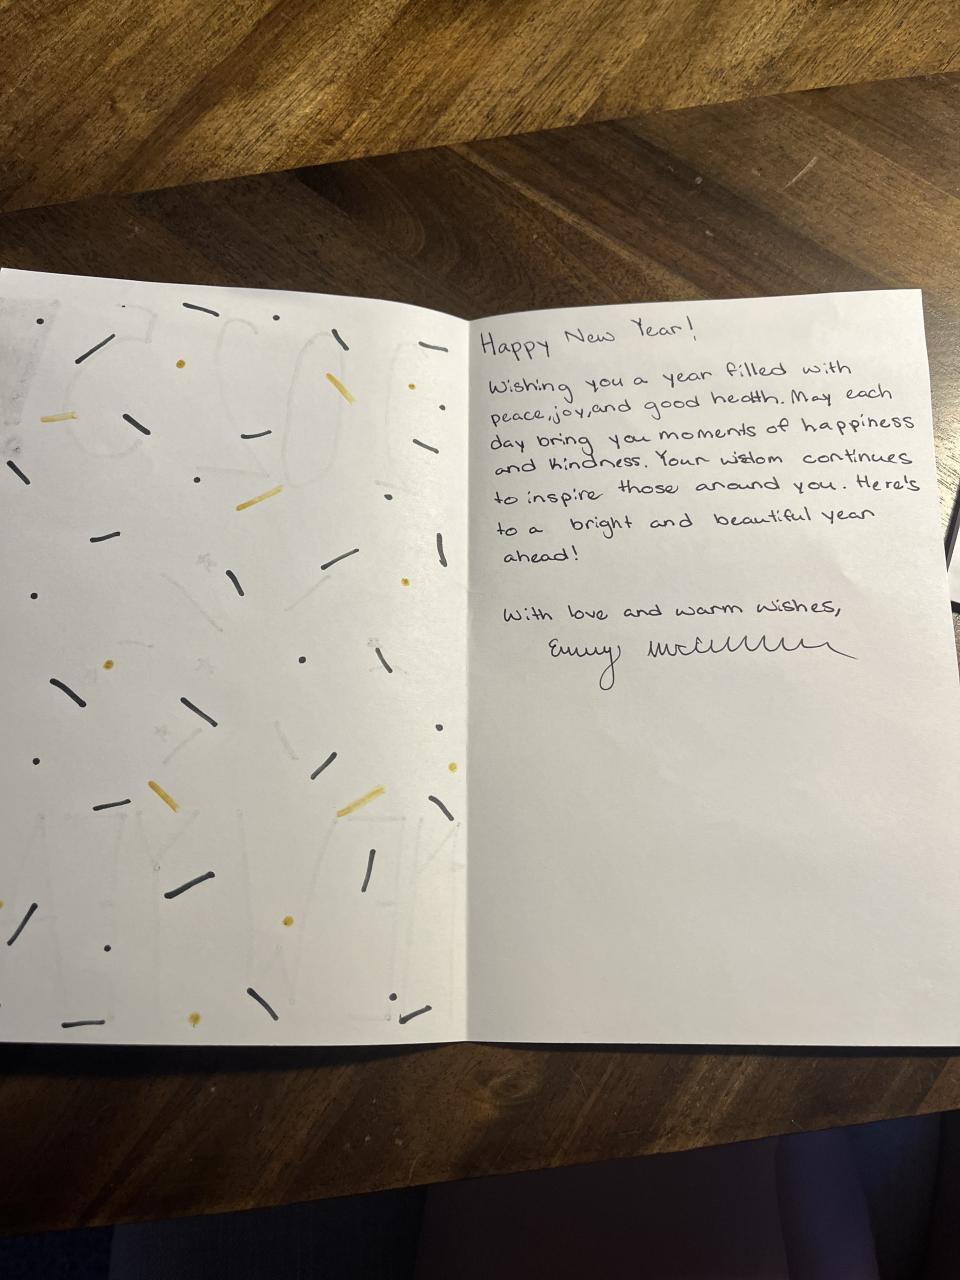 Happy New Year!
Wishing you a year filled with
peace, joy, and good health. May each
day bring you moments of happiness
and kindness. Your wisdom continues
to inspire those around you. Here's
to a bright and beautiful year
ahead!
With love and warm wishes,